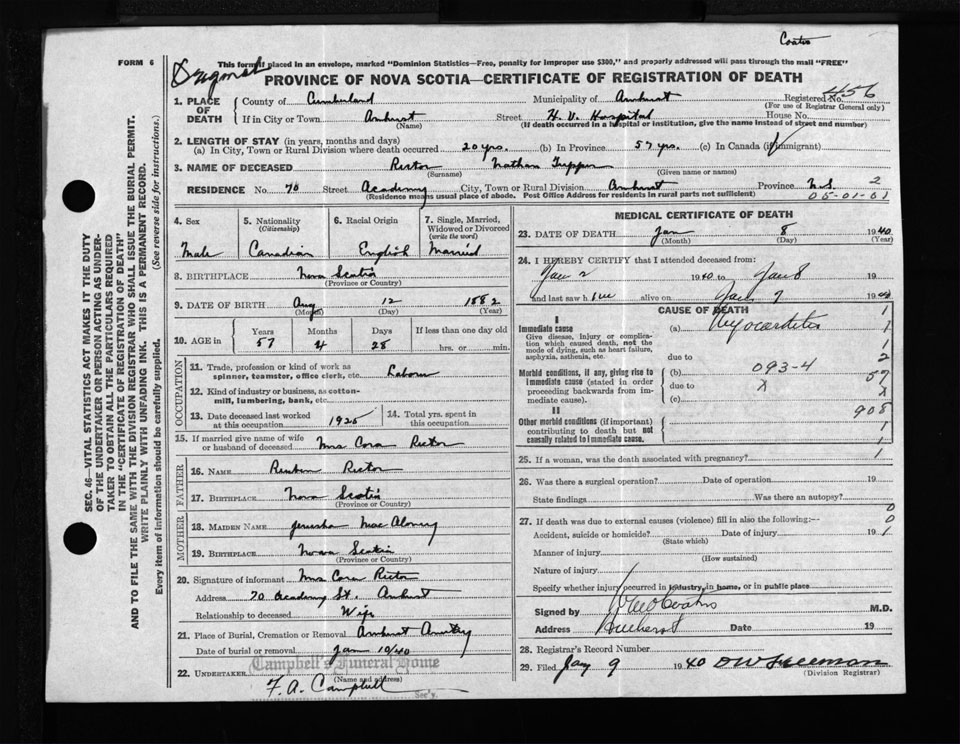 Coates
FORM 6
This form if placed in an envelope, marked "Dominion Statistics—Free, penalty for improper use $300," and properly addressed will pass through the mail "FREE"
PROVINCE OF NOVA SCOTIA—CERTIFICATE OF REGISTRATION OF DEATH
1. PLACE OF DEATH County of Cumberland Municipality of Amherst Registered No. 456
(For use of Registrar General only)
If in City or Town Amherst Street H. V. Hospital House No.
(Name) (If death occurred in a hospital or institution, give the name instead of street and number)
2. LENGTH OF STAY (in years, months and days)
(a) In City, Town or Rural Division where death occurred 20 yrs. (b) In Province 57 yrs. (c) In Canada (if immigrant)
3. NAME OF DECEASED Rector Nathan Tupper
(Surname) (Given name or names)
RESIDENCE No. 70 Street Academy City, Town or Rural Division Amherst Province N.S. 2
(Residence means usual place of abode. Post Office Address for residents in rural parts not sufficient) 05-01-61
4. Sex Male
5. Nationality (Citizenship) Canadian
6. Racial Origin English
7. Single, Married, Widowed or Divorced (write the word) Married
8. BIRTHPLACE Nova Scotia
(Province or Country)
9. DATE OF BIRTH Aug 12 1882
(Month) (Day) (Year)
10. AGE in Years 57 Months 4 Days 28 If less than one day old hrs. or min.
OCCUPATION
11. Trade, profession or kind of work as spinner, teamster, office clerk, etc. Laborer
12. Kind of industry or business, as cotton-mill, lumbering, bank, etc.
13. Date deceased last worked at this occupation 1925
14. Total yrs. spent in this occupation
15. If married give name of wife or husband of deceased Mrs Cora Rector
FATHER
16. NAME Reuben Rector
17. BIRTHPLACE Nova Scotia
(Province or Country)
MOTHER
18. MAIDEN NAME Jerusha
19. BIRTHPLACE Nova Scotia
(Province or Country)
20. Signature of informant Mrs Cora Rector
Address 70 Academy St. Amherst
Relationship to deceased Wife
21. Place of Burial, Cremation or Removal Amherst
Date of burial or removal Jan 10/40
Campbell's Funeral Home
22. UNDERTAKER F. A. Campbell
(Name and address)
Sec'y.
MEDICAL CERTIFICATE OF DEATH
23. DATE OF DEATH Jan 8 1940
(Month) (Day) (Year)
24. I HEREBY CERTIFY that I attended deceased from:
Jan 2 1940 to Jan 8 19
and last saw him alive on Jan 7 1940
CAUSE OF DEATH
I
Immediate cause
Give disease, injury or complication which caused death, not the mode of dying, such as heart failure, asphyxia, asthenia, etc.
(a) Myocarditis
due to
Morbid conditions, if any, giving rise to immediate cause (stated in order proceeding backwards from immediate cause).
(b) 093-4
due to X
(c)
II
Other morbid conditions (if important) contributing to death but not causally related to immediate cause.
1
1
1
2
57
X
908
1
1
1
25. If a woman, was the death associated with pregnancy?
26. Was there a surgical operation? Date of operation 19
State findings Was there an autopsy?
0
27. If death was due to external causes (violence) fill in also the following:— 0
Accident, suicide or homicide? Date of injury 19 1
(State which)
Manner of injury
(How sustained)
Nature of injury
Specify whether injury occurred in industry, in home, or in public place
Signed by M.D.
Address Amherst Date 19
28. Registrar's Record Number
29. Filed Jan 9 1940 D W Freeman
(Division Registrar)
SEC. 46—VITAL STATISTICS ACT MAKES IT THE DUTY
OF THE UNDERTAKER OR PERSON ACTING AS UNDER-
TAKER TO OBTAIN ALL THE PARTICULARS REQUIRED
IN THE "CERTIFICATE OF REGISTRATION OF DEATH"
AND TO FILE THE SAME WITH THE DIVISION REGISTRAR WHO SHALL ISSUE THE BURIAL PERMIT.
WRITE PLAINLY WITH UNFADING INK. THIS IS A PERMANENT RECORD.
Every item of information should be carefully supplied. (See reverse side for instructions.)